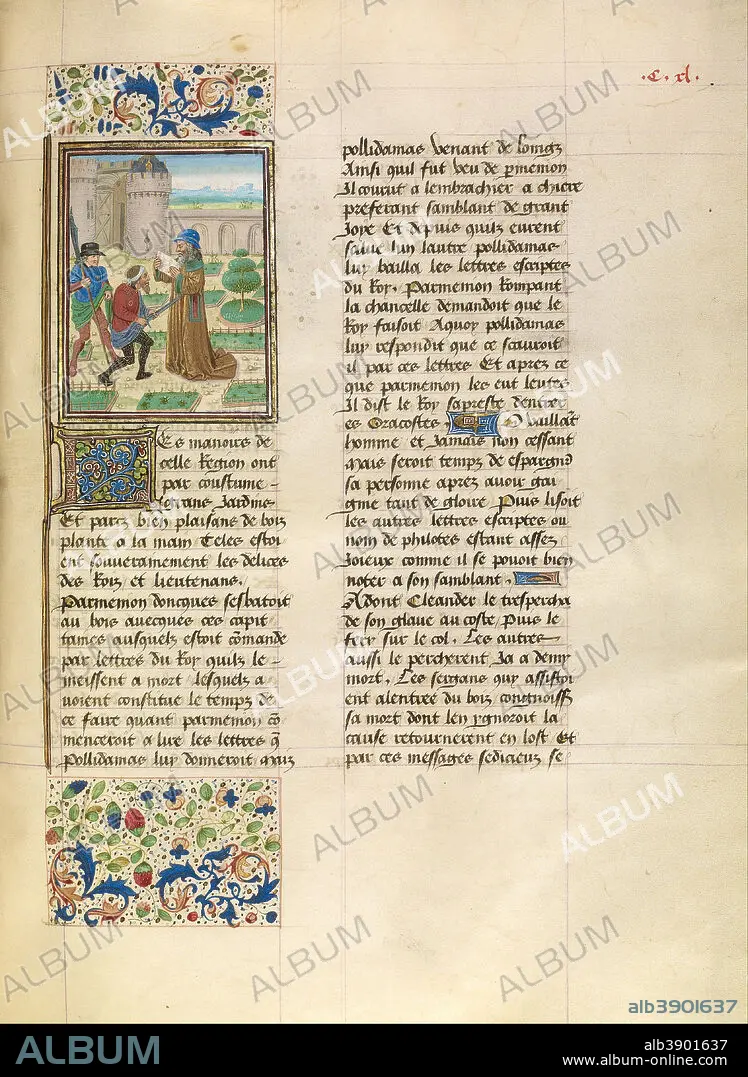 .C. xl.
Les manoirs de
celle Region ont
par coustume
grans Jardins
Et parcz bien plaisans de bois
plante a la main Teles estoi
ent souverainement les delices
des Rois et lieutenans.
Parmenion doncques sesbatoit
au bois avecques ces capit
taines ausquels estoit cōmande
par lettres du Roy quilz le
meissent a mort lesquels a
voient constitue le temps de
ce faire quant parmenion cō
menceroit a lire les lettres q̄
Pollidamas luy donneroit Mais
pollidamas venant de loingz
Ainsi quil fut veu de pmenion
Il courut a lembrachier a chiere
preferant samblant de grant
Joye Et depuis quilz eurent
salue lun lautre pollidamas
luy bailla les lettres escriptes
du Roy. Parmenion Rompant
la chancelle demandoit que le
Roy faisoit Aquoy pollidamas
luy respondit que ce scauroit
il par ces lettres Et aprez ce
que parmenion les eut leutes
Il dist le Roy sapreste dentrer
es Oracostes. O vaillāt
homme et Jamais non cessant
Mais seroit temps de espargn̄
sa personne aprez avoir gai
gnie tant de gloire Puis lisoit
les autres lettres escriptes ou
nom de philotes estant assez
Joieux comme il se pouoit bien
noter a son samblant.
Adont Cleander le trespercha
de son glaue au coste Puis le
fier sur le col. Les autres
aussi le percherent Ja a demy
mort. Les sergans quy assistoi
ent alentree du bois congnoiss
sa mort dont len ygnoroit la
cause retournerent en lost Et
par ces messages sedicieux se
ALBUM
alb3901637
ALBUM
alb3901637
www.album-online.com